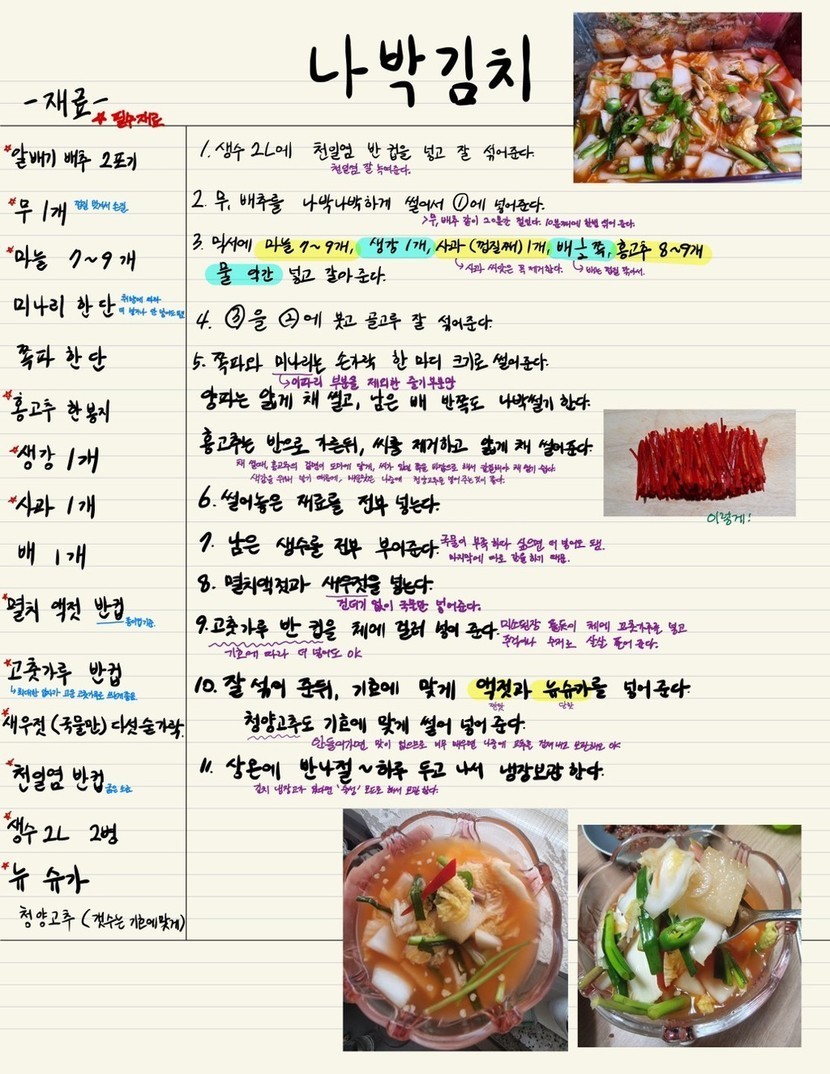 나박김치
-재료-
* 필수재료
*알배기 배추 2포기
*무 1개
*마늘 7~9개
미나리 한 단
쪽파 한 단
*홍고추 한봉지
*생강 1개
*사과 1개
배 1개
*멸치 액젓 반컵
*고춧가루 반컵
*새우젓 (국물만) 다섯 숟가락
*천일염 반컵
굵은 소금
*생수 2L 2병
*뉴 슈가
청양고추 (갯수는 기호에맞게)
1. 생수 2L에 천일염 반 컵을 넣고 잘 섞어준다.
천일염 잘 녹여준다.
2. 무, 배추를 나박나박하게 썰어서 ①에 넣어준다.
>무, 배추 같이 20분간 절인다. 10분째에 한번 섞어 준다.
3. 믹서에 마늘 7~9개, 생강 1개, 사과 (껍질째) 1개, 배 반 쪽, 홍고추 8~9개
사과 씨앗은 꼭 제거한다.
배는 껍질 깎아서.
물 약간 넣고 갈아준다.
4. ③을 ②에 붓고 골고루 잘 섞어준다.
5. 쪽파와 미나리는 손가락 한 마디 크기로 썰어준다.
이파리 부분을 제외한 줄기부분만
양파는 얇게 채 썰고, 남은 배 반쪽도 나박썰기 한다.
홍고추는 반으로 가른뒤, 씨를 제거하고 얇게 채 썰어준다.
이렇게!
6. 썰어놓은 재료를 전부 넣는다.
7. 남은 생수를 전부 부어준다.
국물이 부족 하다 싶으면 더 넣어도 됨.
마지막에 따로 간을 하기 때문.
8. 멸치액젓과 새우젓을 넣는다.
건더기 없이 국물만 넣어준다.
9. 고춧가루 반 컵을 체에 걸러 넣어 준다.
미소된장 풀듯이 체에 고춧가루를 넣고
주걱이나 수저로 살살 풀어 준다.
기호에 따라 더 넣어도 OK
10. 잘 섞어 준뒤, 기호에 맞게 액젓과 뉴슈가를 넣어준다.
짠맛
단맛
청양고추도 기호에 맞게 썰어 넣어 준다.
안들어가면 맛이 없으므로 너무 매우면 나중에 고추를 건져내고 보관해도 OK
11. 상온에 반나절 ~ 하루 두고 나서 냉장보관 한다.
김치 냉장고가 있다면 '숙성' 모드로 해서 보관한다.